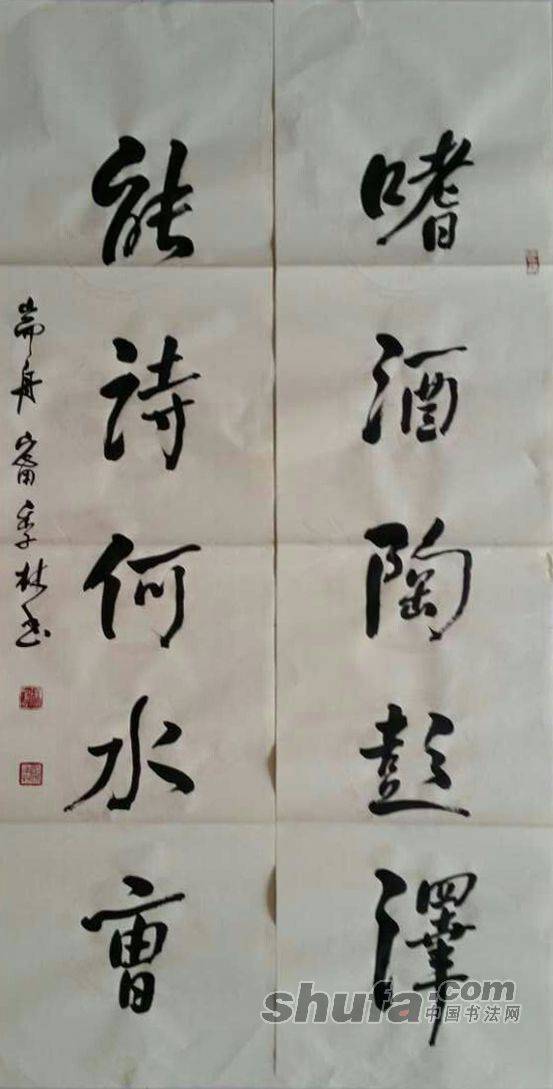 嗜酒陶彭澤
能詩何水曹
耑舟 甯季林书
shufa.com
中国书法网